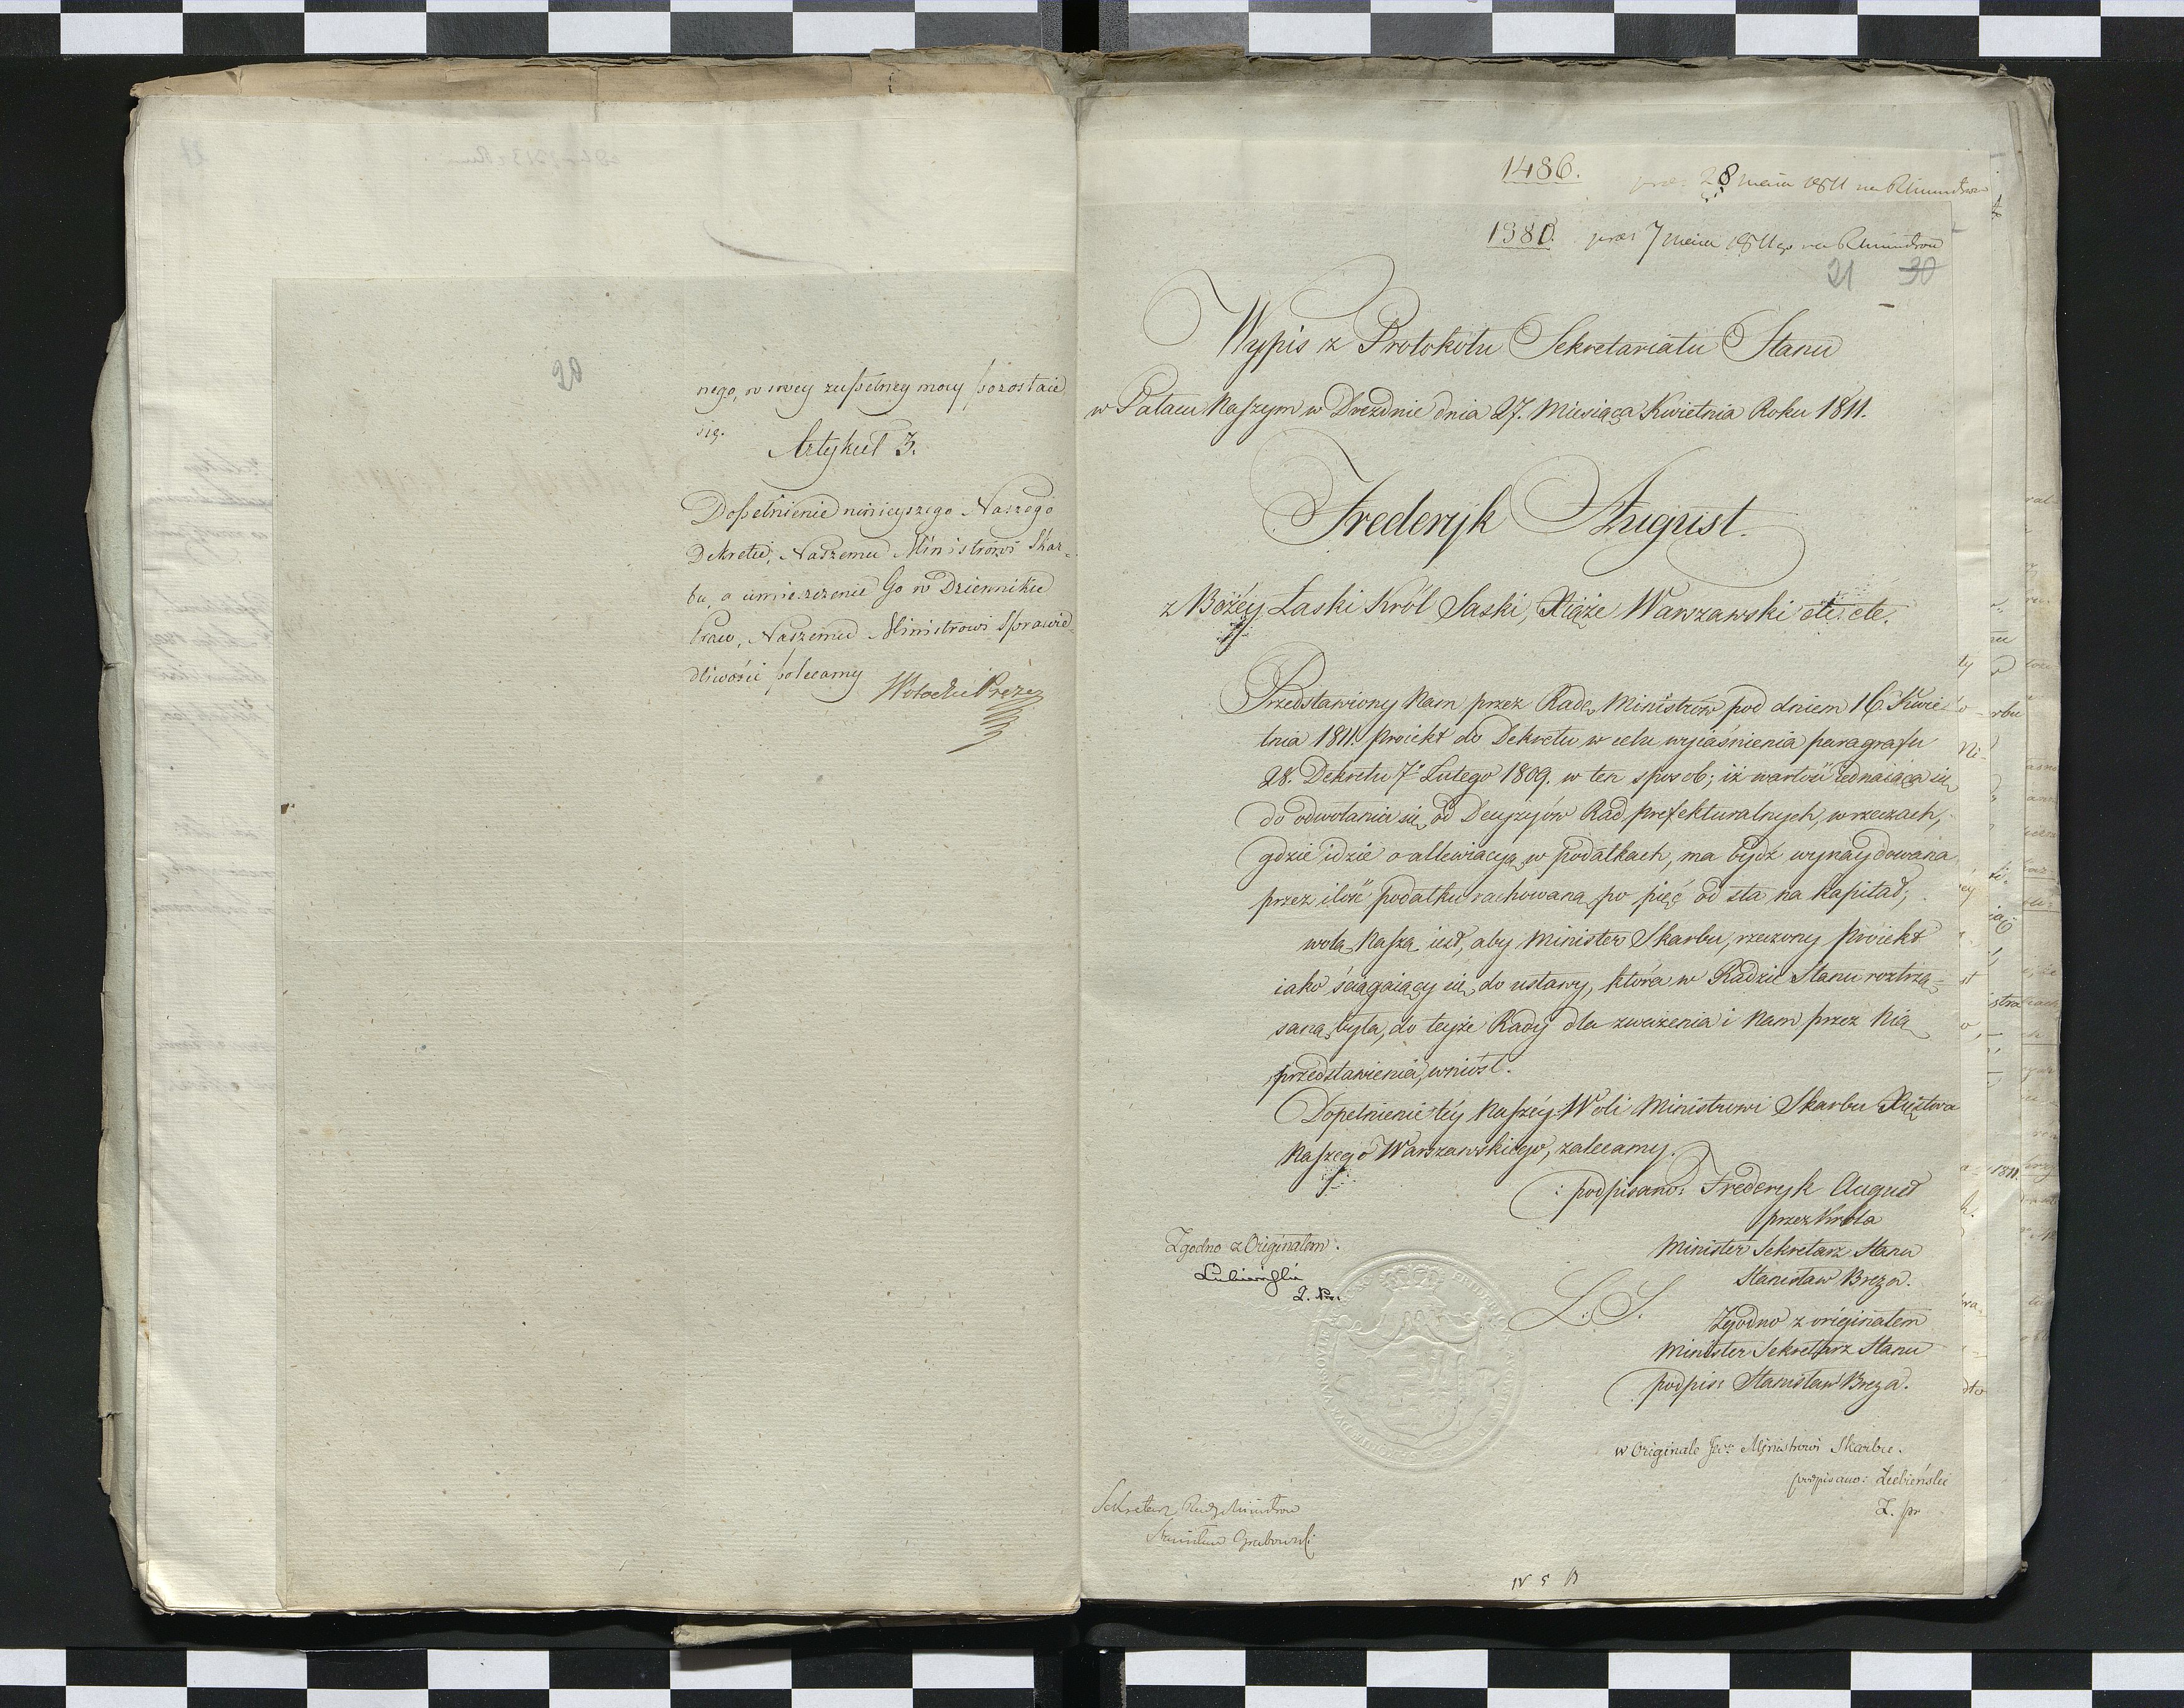 20
nego, w swey zupełney mocy pozostaie
się.
Artykuł 3.
Dopełnienie ninieyszego Naszego
Dekretu, Naszemu Ministrowi Skar-
bu, a umieszczenie Go w Dzienniku
Praw, Naszemu Ministrowi Sprawie-
dliwości polecamy
1486. 28 Maia 1811 na R Ministrów
1380. prez 7 Maia 1811 go na R Ministrów
21 30
Wypis z Protokołu Sekretariatu Stanu
w Pałacu Naszym w Dreznie dnia 27. Miesiąca Kwietnia Roku 1811.
Frederyk August.
z Bożéy Łaski Król Saski, Xiąże Warszawski etc. etc.
Przedstawiony Nam przez Radę Ministrów pod dniem 16. Kwie-
tnia 1811. proiekt do Dekretu w celu wyiaśnienia paragrafu
28. Dekretu 7º Lutego 1809. w ten sposob; iż wartość iednaiąca się
do odwołania się od Decyzyów Rad prefekturalnych, w rzeczach,
gdzie idzie o allewiacyą w podatkach, ma bydź wynaydowana
przez ilość podatku rachowaną po pięć od sta na kapitał;
wolą Naszą iest, aby Minister Skarbu, rzeczony proiekt
iako ściągaiący się do ustawy, która w Radzie Stanu roztrzą-
saną była, do teyże Rady dla zważenia i Nam przez Nią
przedstawienia, wniósł.
Dopełnienie téy Naszéy Woli Ministrowi Skarbu Xięstwa
Naszego Warszawskiego, zalecamy.
: podpisano: Frederyk August
przez Króla
Minister Sekretarz Stanu
Stanisław Breza.
Zgodno z Originałem.
L. S.
Zgodno z originałem
Minister Sekretarz Stanu
podpis: Stanisław Breza.
w Originale Jw: Ministrowi Skarbu.
podpisano: Łubieński
Sekretarz Rady Ministrów
Stanisław Grabowski